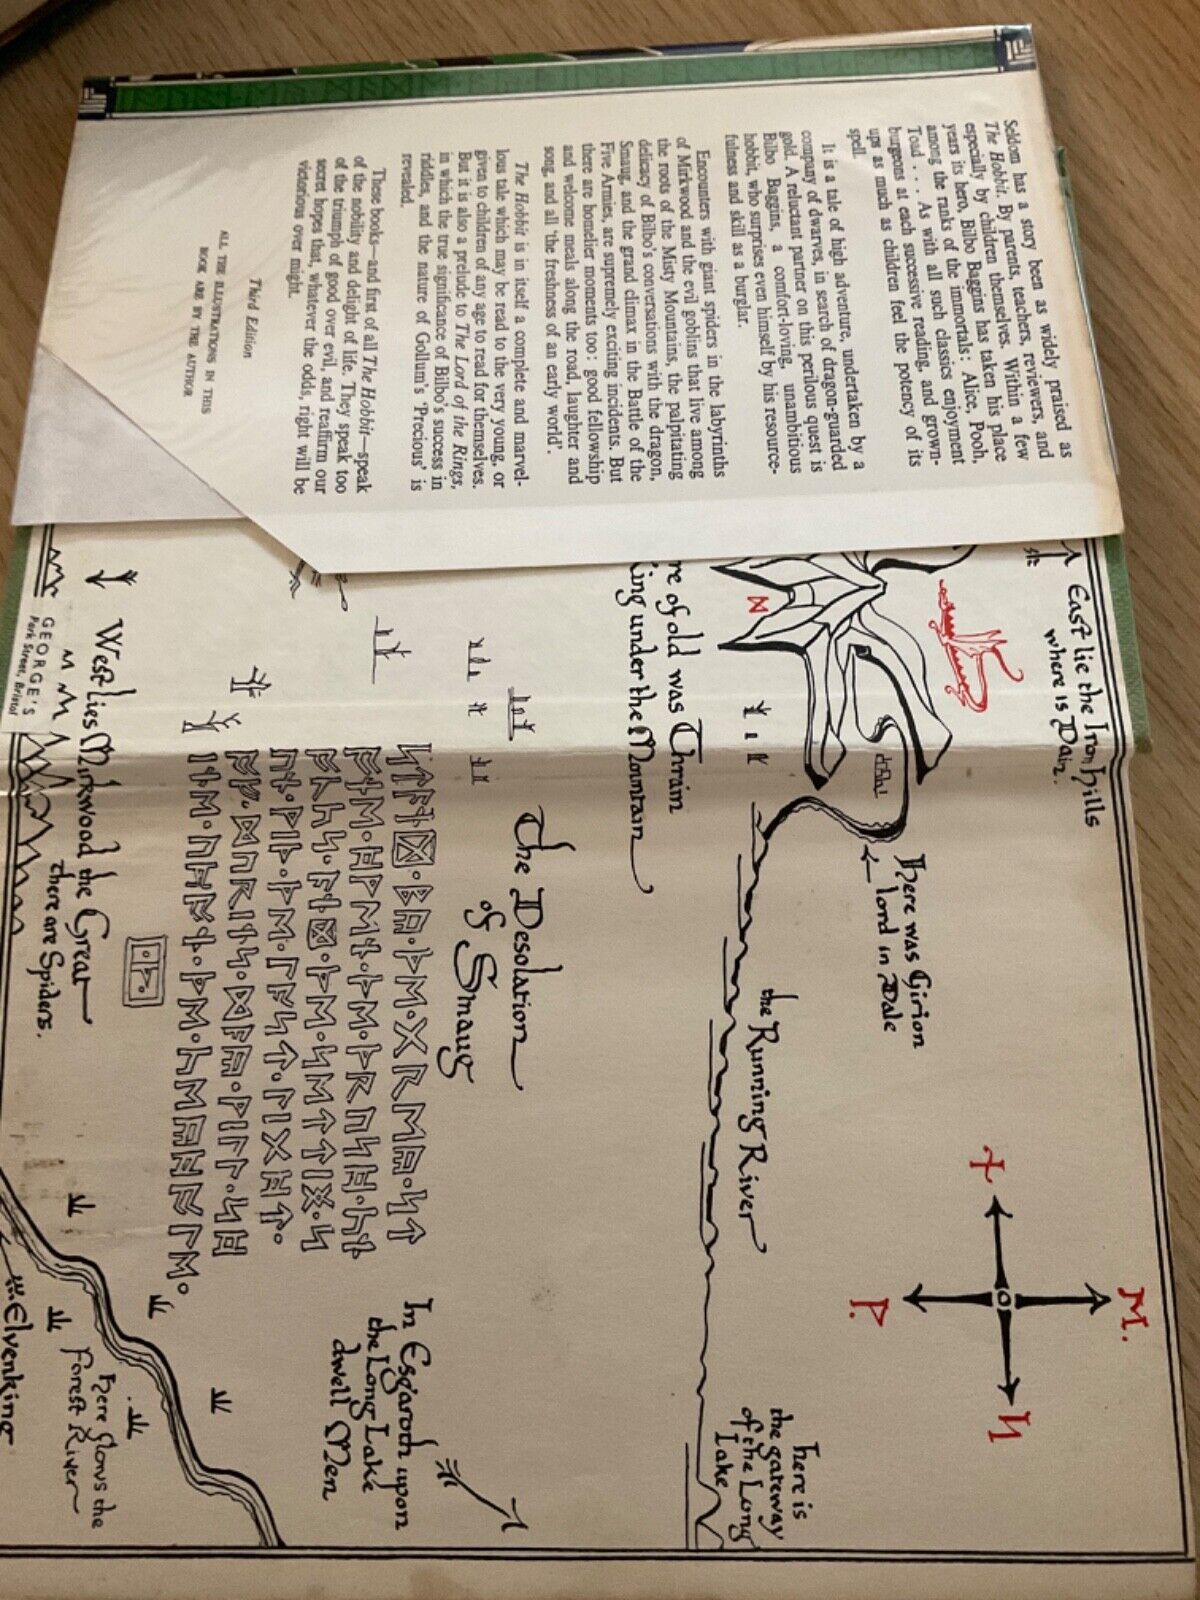 Seldom has a story been as widely praised as
The Hobbit. By parents, teachers, reviewers, and
especially by children themselves. Within a few
years its hero, Bilbo Baggins has taken his place
among the ranks of the immortals: Alice, Pooh,
Toad . . . As with all such classics enjoyment
burgeons at each successive reading, and grown-
ups as much as children feel the potency of its
spell.
It is a tale of high adventure, undertaken by a
company of dwarves, in search of dragon-guarded
gold. A reluctant partner on this perilous quest is
Bilbo Baggins, a comfort-loving, unambitious
hobbit, who surprises even himself by his resource-
fulness and skill as a burglar.
Encounters with giant spiders in the labyrinths
of Mirkwood and the evil goblins that live among
the roots of the Misty Mountains, the palpitating
delicacy of Bilbo's conversations with the dragon,
Smaug, and the grand climax in the Battle of the
Five Armies, are supremely exciting incidents. But
there are homelier moments too: good fellowship
and welcome meals along the road, laughter and
song, and all 'the freshness of an early world'.
The Hobbit is in itself a complete and marvel-
lous tale which may be read to the very young, or
given to children of any age to read for themselves.
But it is also a prelude to The Lord of the Rings,
in which the true significance of Bilbo's success in
riddles, and the nature of Gollum's 'Precious' is
revealed.
These books—and first of all The Hobbit—speak
of the nobility and delight of life. They speak too
of the triumph of good over evil, and reaffirm our
secret hopes that, whatever the odds, right will be
victorious over might.
Third Edition
ALL THE ILLUSTRATIONS IN THIS
BOOK ARE BY THE AUTHOR
East lie the Iron Hills
where is Dain.
M.
P.
Here was Girion
lord in Dale
the Running River
here is
the gateway
of the Long
Lake
re of old was Thrain
King under the Mountain
The Desolation
of Smaug
ᛋᛏᚪᚾᛞ·ᛒᚣ·ᚦᛖ·ᚷᚱᛖᚣ·ᛋᛏ
ᚩᚾᛖ·ᚻᚹᛖᚾ·ᚦᛖ·ᚦᚱᚢᛋᚻ·ᚳᚾ
ᚩᚳᛋ·ᚪᚾᛞ·ᚦᛖ·ᛋᛖᛏᛏᛁᛝ·ᛋ
ᚢᚾ·ᚹᛁᚦ·ᚦᛖ·ᛚᚪᛋᛏ·ᛚᛁᚷᚻᛏ·
ᚩᚠ·ᛞᚢᚱᛁᚾᛋ·ᛞᚪᚣ·ᚹᛁᛚᛚ·ᛋᚻ
ᛁᚾᛖ·ᚢᛈᚩᚾ·ᚦᛖ·ᚳᛖᚣᚻᚩᛚᛖ·
In Esgaroth upon
the Long Lake
dwell Men
West lies Mirkwood the Great
there are Spiders.
here flows the
Forest River
Elvenking
GEORGE'S
Park Street, Bristol